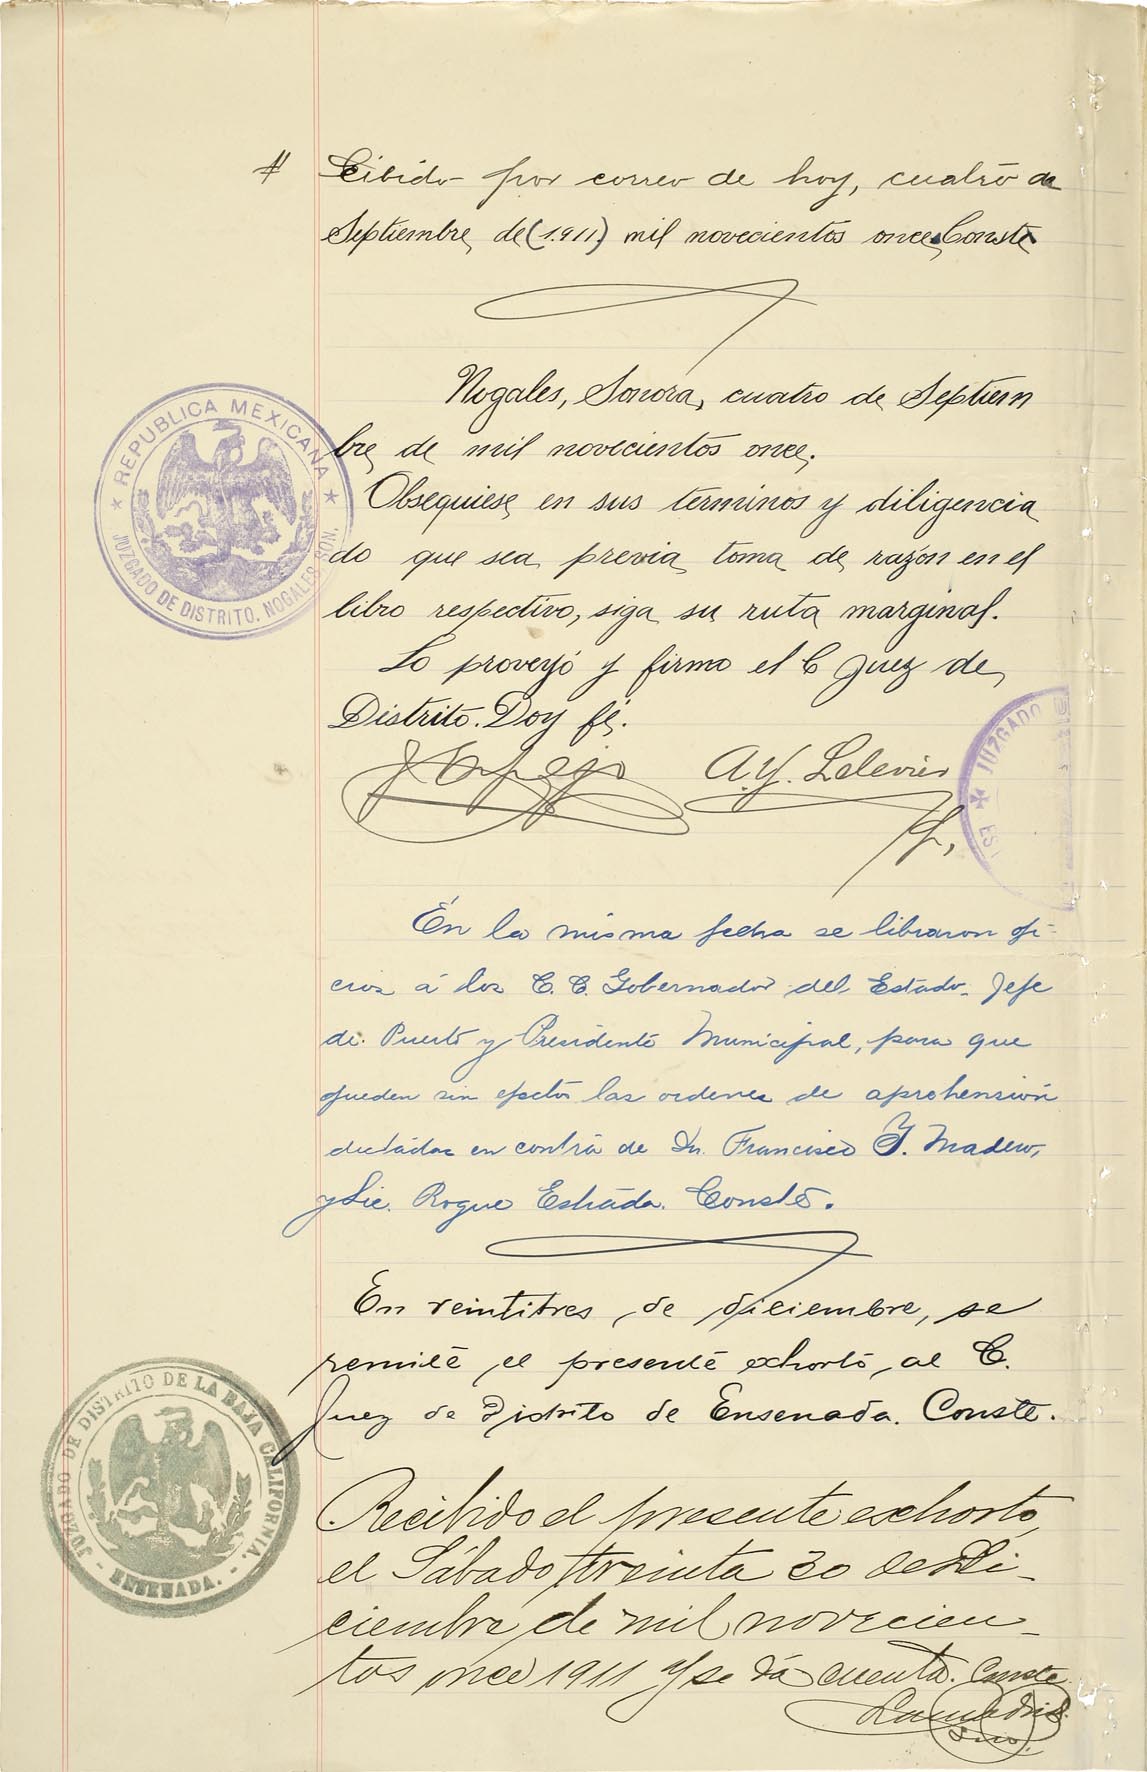 # Recibido por correo de hoy, cuatro de
Septiembre de (1.911.) mil novecientos once. Conste
Nogales, Sonora, cuatro de Septiem
bre de mil novecientos once.
Obsequiese en sus terminos y diligencia
do que sea previa toma de razón en el
libro respectivo, siga su ruta marginal.
Lo proveyó y firmo el C Juez de
Distrito. Doy fé.
A. Y. Lelevier
REPUBLICA MEXICANA
JUZGADO DE DISTRITO. NOGALES. SON.
JUZGADO
En la misma fecha se libraron ofi-
cios á los C. C. Gobernador del Estado. Jefe
de Puerto y Presidente Municipal, para que
queden sin efectos las ordenes de aprehensión
dictadas en contra de Dn. Francisco Y. Madero,
y Lic. Roque Estrada. Conste.
En veintitres de diciembre, se
remite el presente exhorto al C.
Juez de Distrito de Ensenada. Conste.
JUZGADO DE DISTRITO DE LA BAJA CALIFORNIA.
- ENSENADA. -
Recibido el presente exhorto,
el Sábado treinta 30 de Di-
ciembre de mil novecien-
tos once 1911 y se dá cuenta. Conste.
Lamadrid.
Srio.